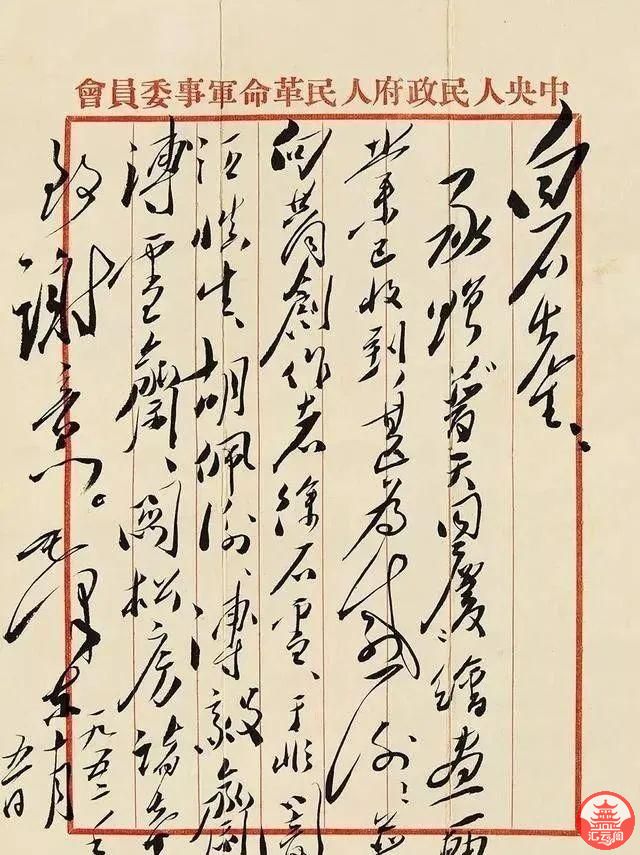 中央人民政府人民革命軍事委員會
白石先生：
承贈普天同慶繪畫一軸
業已收到，甚為感謝！並
向共同創作者徐石雪、于非闇、
汪慎生、胡佩衡、溥毅齋、
溥雪齋、關松房諸先生
致謝意。毛澤東
一九五二年
十月
五日
汇云阁